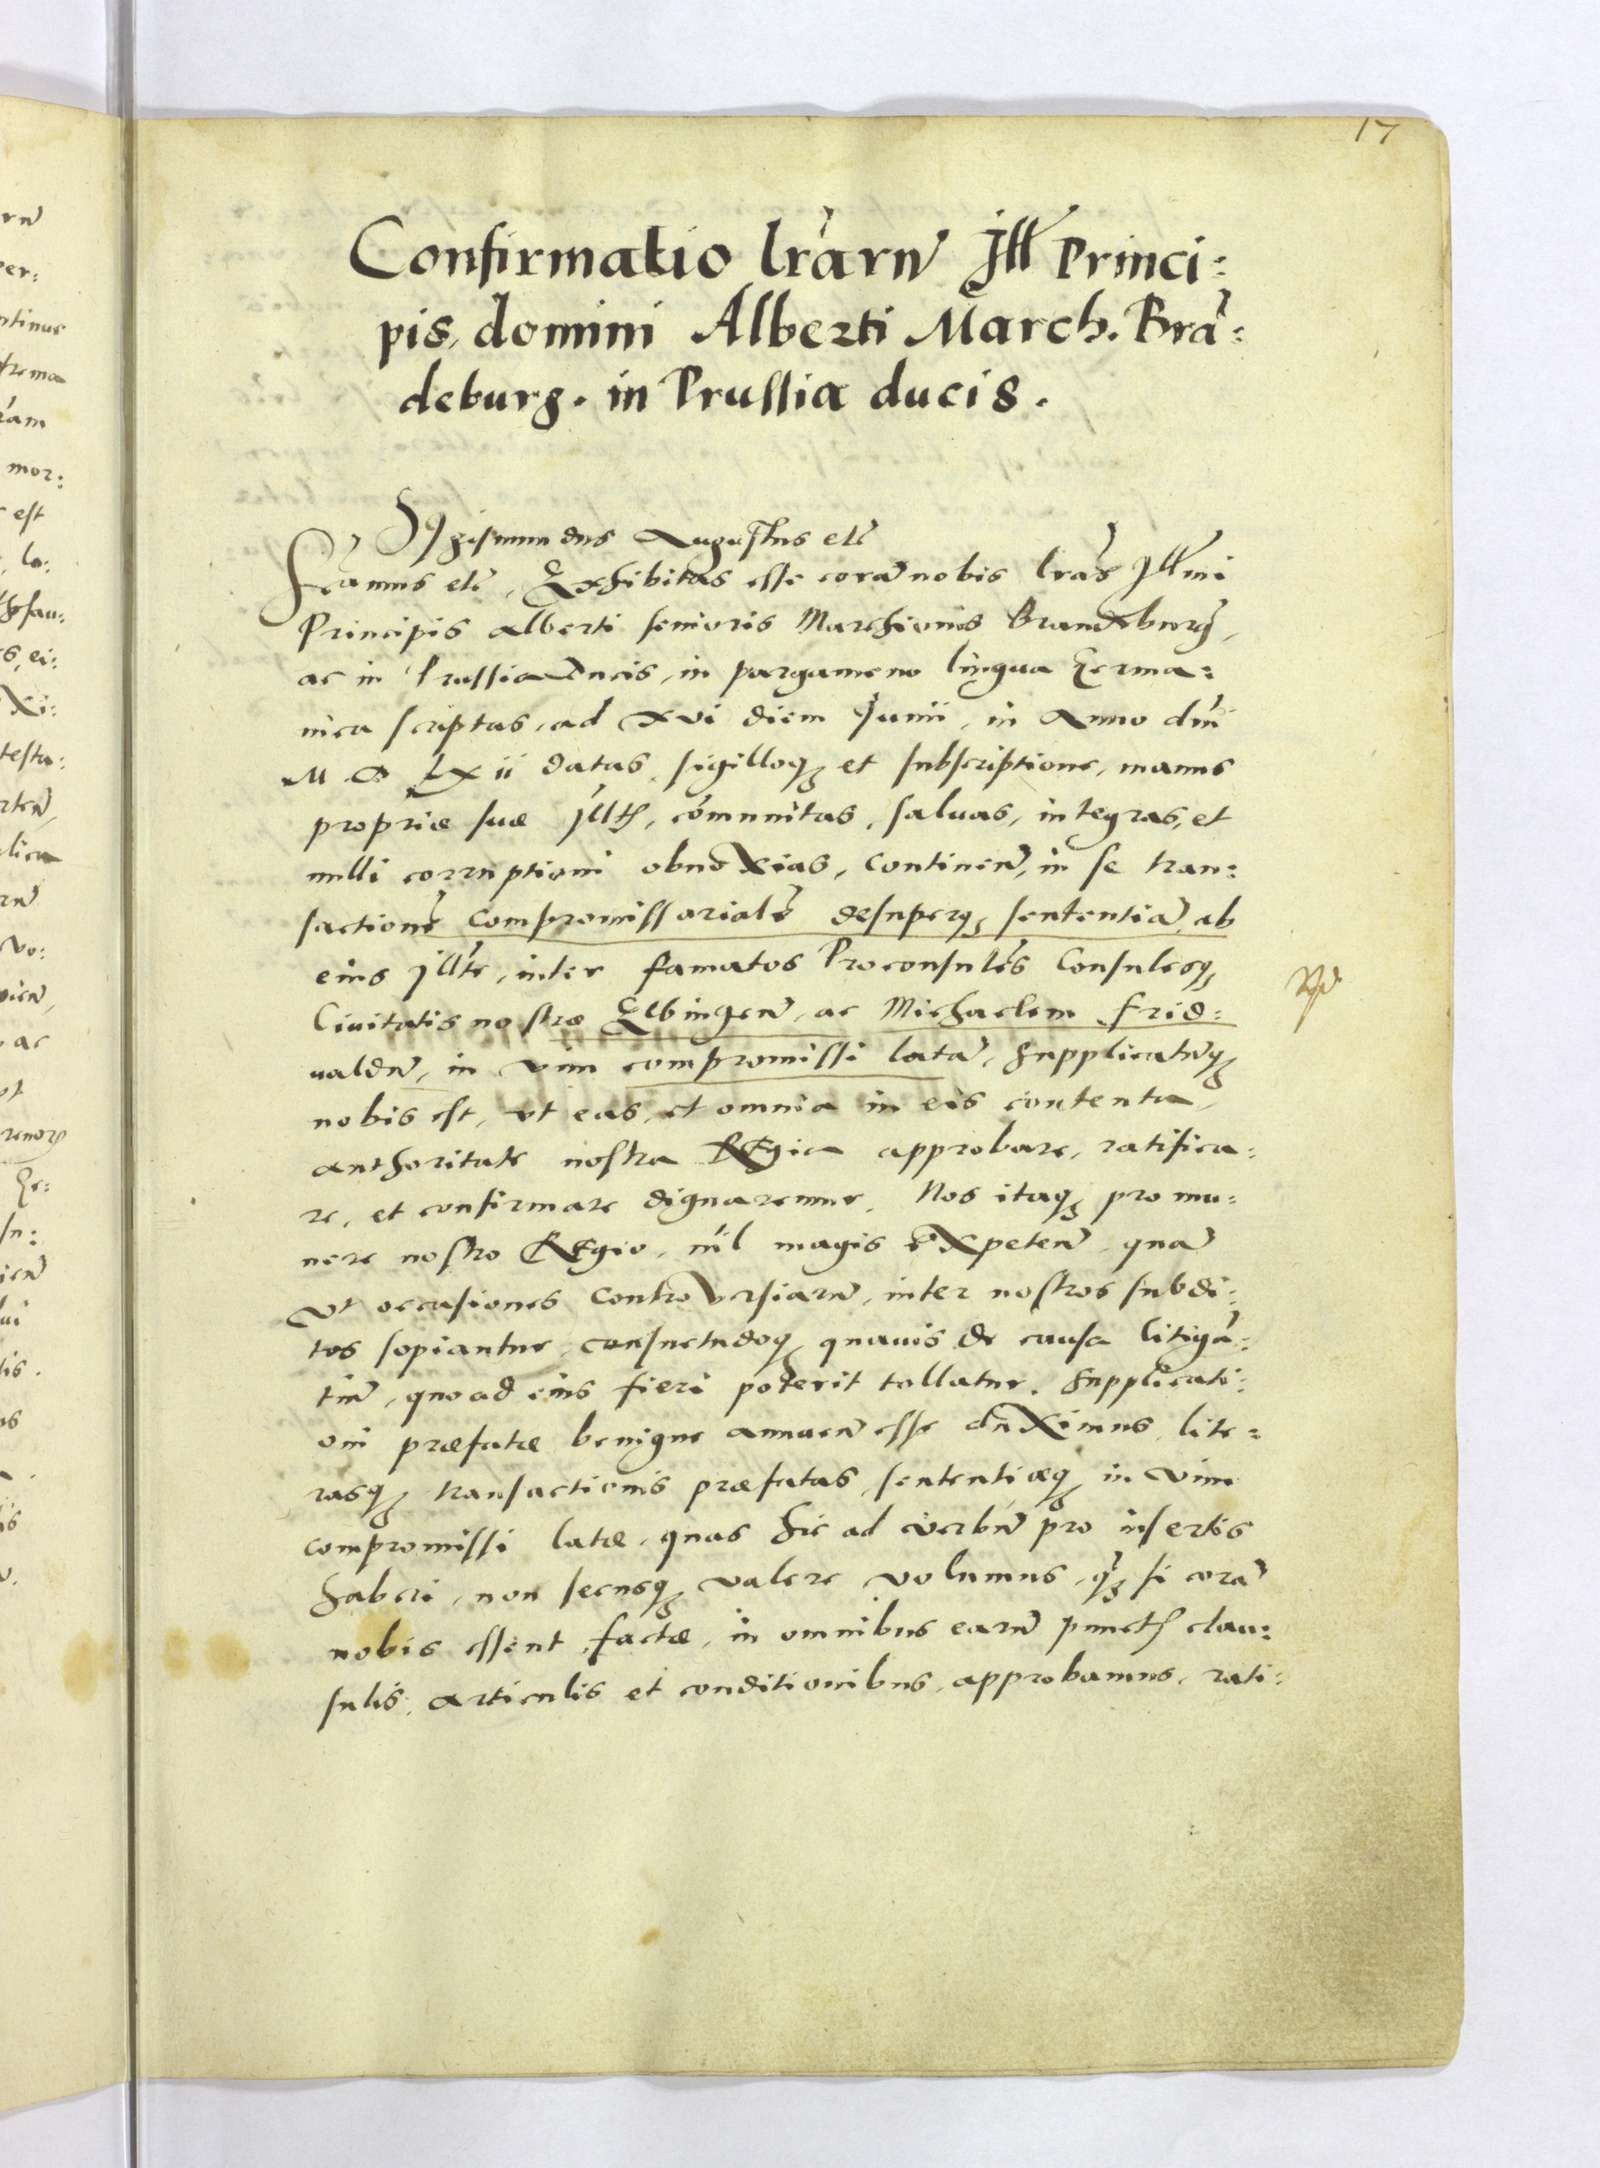 17
Confirmatio lrarū Ill Princi:
pis, domini Alberti March. Brā:
deburg. in Prussia ducis.
Sigismundus Augustus etc
Fcamus etc, Exhibitas esse corā nobis lras Illmi
Principis Alberti senioris Marchionis Brandeburg,
ac in Prussia Ducis, in pargameno lingua Germa:
nica scriptas, ad xvi diem Junii, in Anno dni
M D LX ii datas, sigilloq; et subscriptione, manus
propriæ suæ Illtis, cōmunitas, saluas, integras, et
nulli corruptioni obnoxias, continen, in se tran:
sactionē compromissorialē desuperq; sententiā, ab
eius Illte, inter famatos Proconsules Consulesq;
Ciuitatis nostræ Elbingen, ac Michaelem Frid:
valdū, in vim compromissi latā, supplicatūq;
nobis est, vt eas, et omnia in eis contenta,
authoritate nostra Regia approbare, ratifica:
re, et confirmare dignaremur. Nos itaq; pro mu:
nere nostro Regio, nil magis expeten, quā
vt occasiones controversiarū, inter nostros subdi:
tos sopiantur, consuetudoq; quauis de causa litigā:
tiū, quoad eius fieri poterit tollatur. Supplicati:
oni præfatæ benigne annuen esse duximus, lite:
rasq; transactionis præfatas, sententiæq; in vim
compromissi latæ, quas hic ad verbū pro insertis
haberi, non secusq; valere volumus, q; si corā
nobis essent factæ, in omnibus earū punctis clau:
sulis, articulis et conditionibus, approbamus, rati: